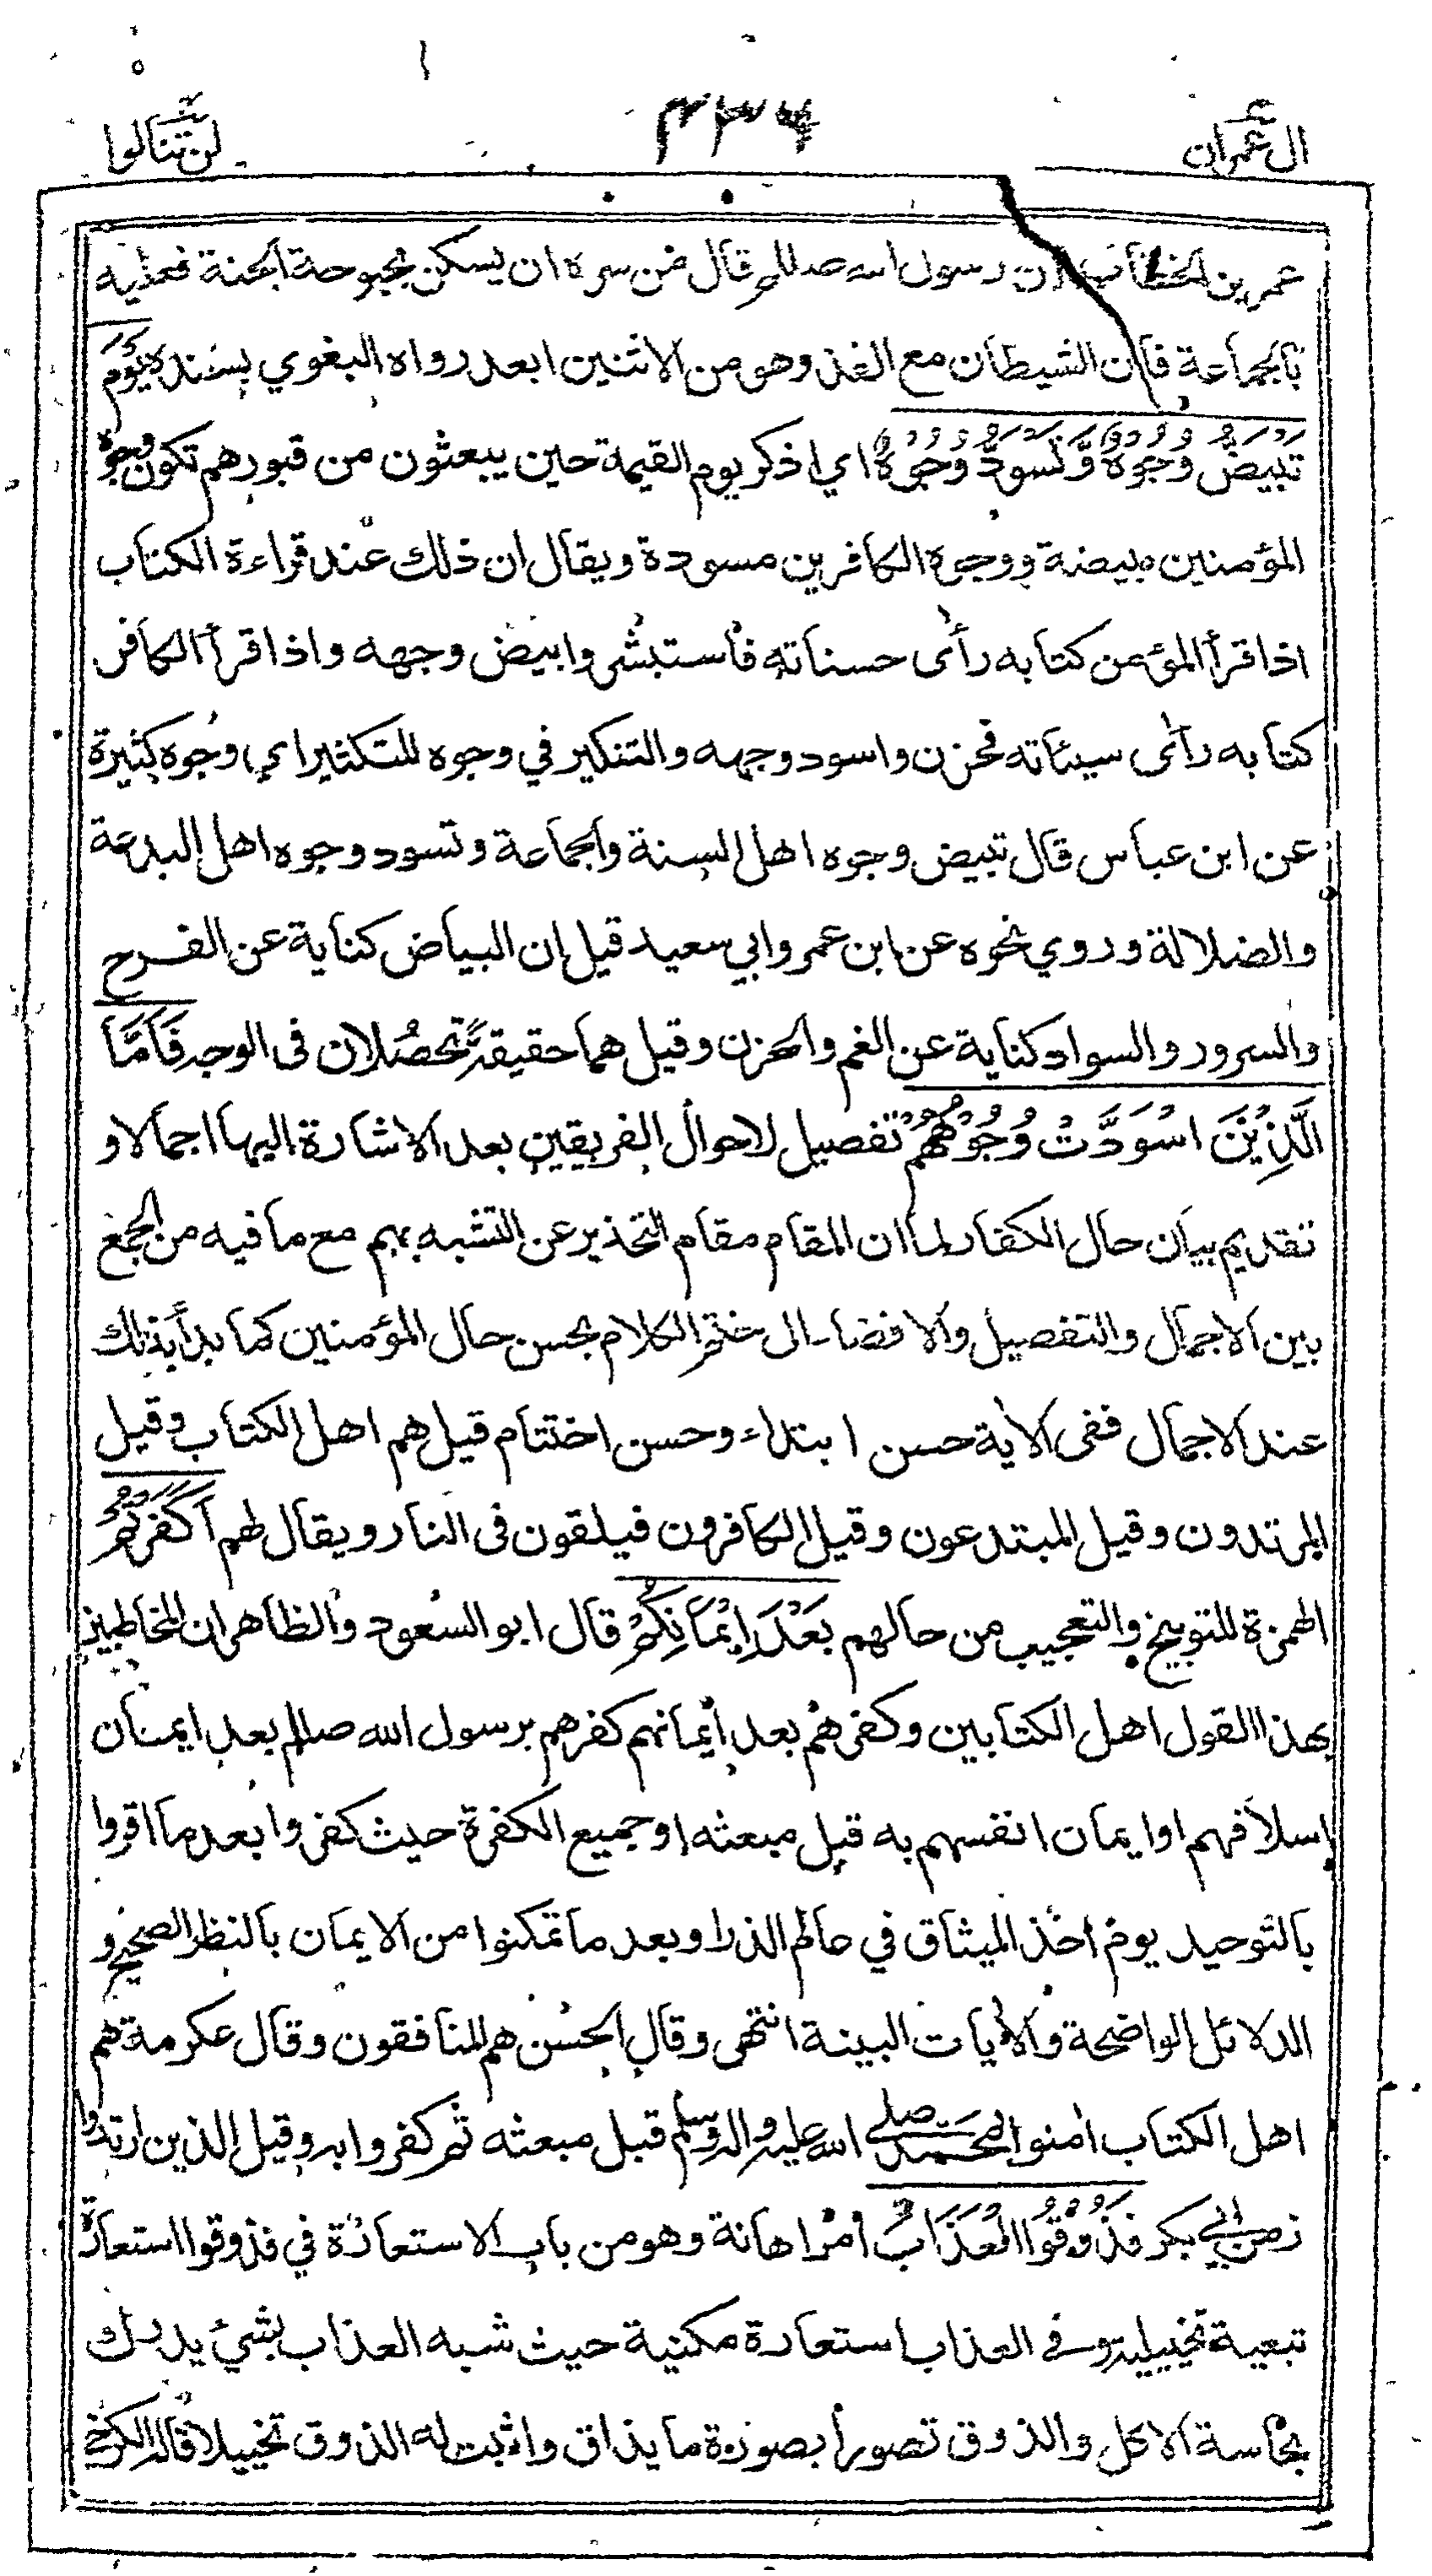 ال عمران ٤٣٦ لن تنالوا
عمر بن الخطاب ان رسول الله صللم قال من سره ان يسكن بحبوحة الجنة فعليه
بالجماعة فان الشيطان مع الفذ وهو من الاثنين ابعد رواه البغوي بسنده يَوْمَ
تَبْيَضُّ وُجُوْهٌ وَّتَسْوَدُّ وُجُوْهٌ اي اذكر يوم القيمة حين يبعثون من قبورهم تكون وجوه
المؤمنين مبيضة ووجوه الكافرين مسودة ويقال ان ذلك عند قراءة الكتاب
اذا قرأ المؤمن كتابه رأى حسناته فاستبشر وابيض وجهه واذا قرأ الكافر
كتابه رأى سيئاته فحزن واسود وجهه والتنكير في وجوه للتكثير اي وجوه كثيرة
عن ابن عباس قال تبيض وجوه اهل السنة والجماعة وتسود وجوه اهل البدعة
والضلالة وروي نحوه عن ابن عمر وابي سعيد قيل ان البياض كناية عن الفرح
والسرور والسواد كناية عن الغم والحزن وقيل هما حقيقة تحصلان فى الوجه فَاَمَّا
الَّذِيْنَ اسْوَدَّتْ وُجُوْهُهُمْ تفصيل لاحوال الفريقين بعد الاشارة اليها اجمالا و
تقديم بيان حال الكفار لما ان المقام مقام التحذير عن التشبه بهم مع ما فيه من الجمع
بين الاجمال والتفصيل والافضاء الى ختم الكلام بحسن حال المؤمنين كما بدأ بذلك
عند الاجمال ففى الآية حسن ابتداء وحسن اختتام قيل هم اهل الكتاب وقيل
المرتدون وقيل المبتدعون وقيل الكافرون فيلقون فى النار ويقال لهم اَكَفَرْتُمْ
الهمزة للتوبيخ والتعجيب من حالهم بَعْدَ اِيْمَانِكُمْ قال ابو السعود والظاهر ان المخاطبين
بهذا القول اهل الكتابين وكفرهم بعد ايمانهم كفرهم برسول الله صللم بعد ايمان
اسلافهم او ايمان انفسهم به قبل مبعثه او جميع الكفرة حيث كفروا بعد ما اقروا
بالتوحيد يوم اخذ الميثاق في عالم الذر او بعد ما تمكنوا من الايمان بالنظر الصحيح و
الدلائل الواضحة والآيات البينة انتهى وقال الحسن هم المنافقون وقال عكرمة هم
اهل الكتاب امنوا بمحمد صلى الله عليه واله وسلم قبل مبعثه ثم كفروا به وقيل الذين ارتدوا
زمن ابي بكر فَذُوْقُوا الْعَذَابَ امر اهانة وهو من باب الاستعارة في فذوقوا استعارة
تبعية تخييلية وفى العذاب استعارة مكنية حيث شبه العذاب بشيء يدرك
بحاسة الاكل والذوق تصورا بصورة ما يذاق واثبت له الذوق تخييلا قاله الكرخي